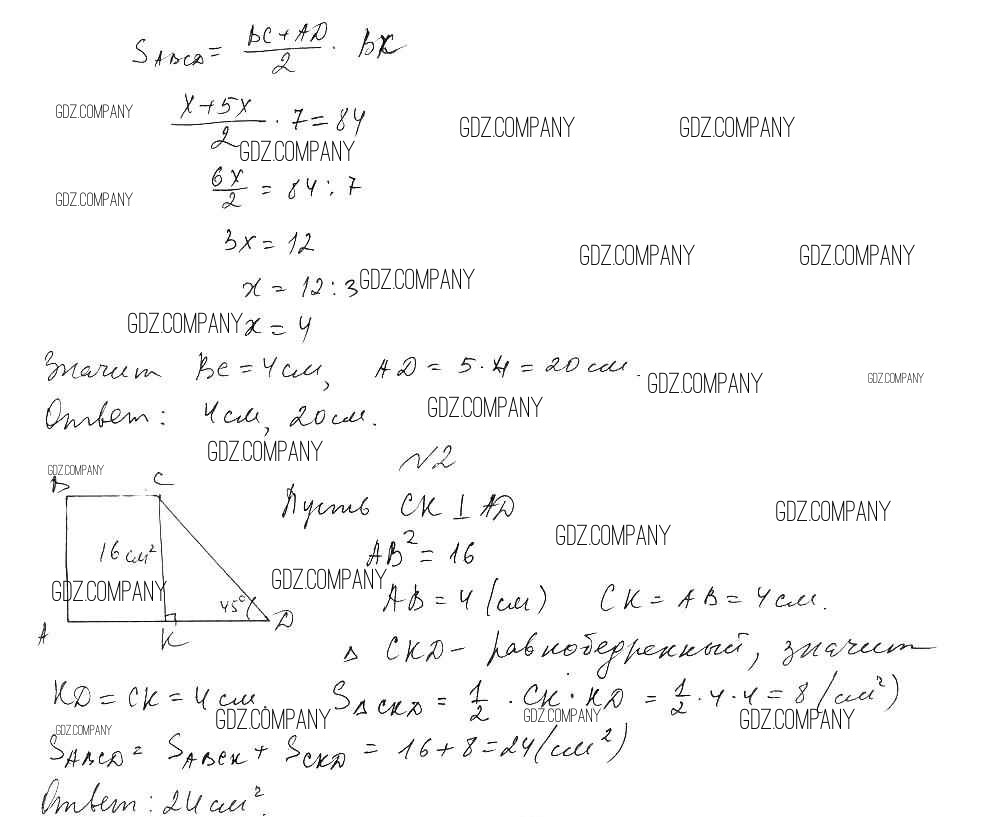 S ABCD = BC + AD / 2 · BK
GDZ.COMPANY
x + 5x / 2 · 7 = 84
GDZ.COMPANY GDZ.COMPANY
GDZ.COMPANY
GDZ.COMPANY
6x / 2 = 84 : 7
3x = 12
GDZ.COMPANY GDZ.COMPANY
x = 12 : 3
GDZ.COMPANY
GDZ.COMPANY
x = 4
Значит BC = 4 см, AD = 5 · 4 = 20 см.
GDZ.COMPANY GDZ.COMPANY
Ответ: 4 см, 20 см.
GDZ.COMPANY
GDZ.COMPANY
№2
GDZ.COMPANY
B C
Пусть CK ⊥ AD
GDZ.COMPANY
GDZ.COMPANY
16 см²
AB² = 16
GDZ.COMPANY
GDZ.COMPANY
45°
AB = 4 (см) CK = AB = 4 см.
A K D
△ CKD - равнобедренный, значит
KD = CK = 4 см. S △CKD = 1/2 · CK · KD = 1/2 · 4 · 4 = 8 (см²)
GDZ.COMPANY GDZ.COMPANY GDZ.COMPANY
GDZ.COMPANY
S ABCD = S ABCK + S CKD = 16 + 8 = 24 (см²)
Ответ: 24 см².